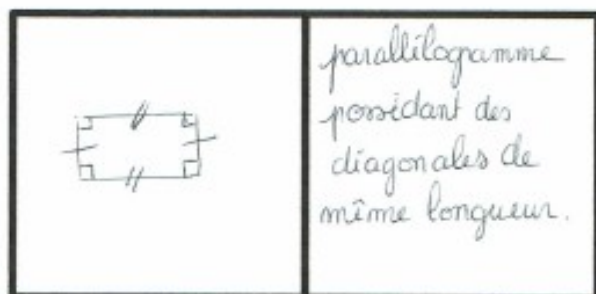 parallélogramme
possédant des
diagonales de
même longueur.